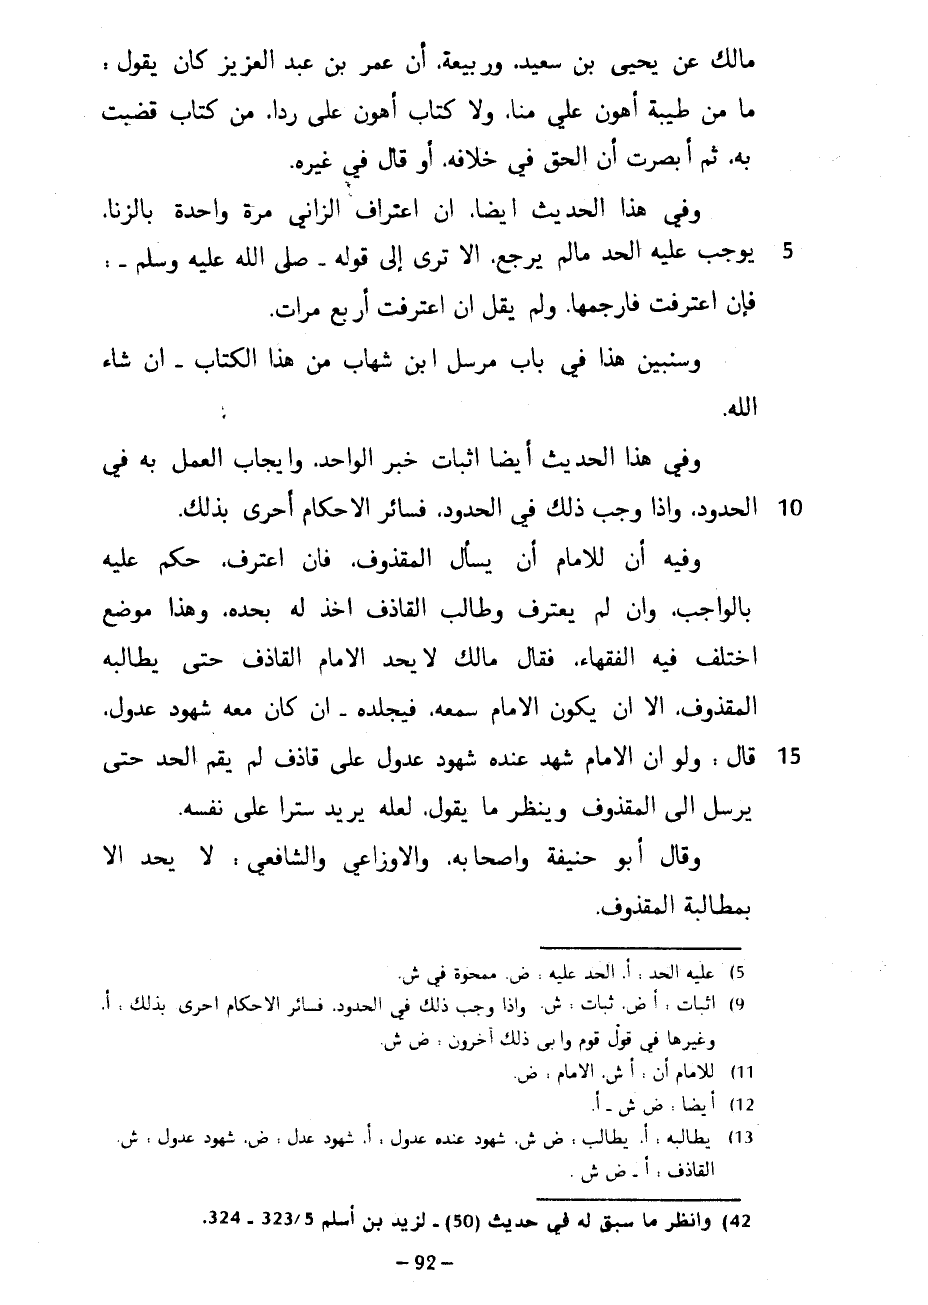 مالك عن يحيى بن سعيد، وربيعة، أن عمر بن عبد العزيز كان يقول :
ما من طيبة أهون علي منا، ولا كتاب أهون على ردا، من كتاب قضيت
به، ثم أبصرت أن الحق في خلافه، أو قال في غيره.
وفي هذا الحديث ايضا، ان اعتراف الزاني مرة واحدة بالزنا،
5 يوجب عليه الحد مالم يرجع، الا ترى إلى قوله ـ صلى الله عليه وسلم ـ :
فإن اعترفت فارجمها، ولم يقل ان اعترفت أربع مرات.
وسنبين هذا في باب مرسل ابن شهاب من هذا الكتاب ـ ان شاء
الله.
وفي هذا الحديث أيضا اثبات خبر الواحد، وايجاب العمل به في
10 الحدود، واذا وجب ذلك في الحدود، فسائر الاحكام أحرى بذلك.
وفيه أن للامام أن يسأل المقذوف، فان اعترف، حكم عليه
بالواجب، وان لم يعترف وطالب القاذف اخذ له بحده، وهذا موضع
اختلف فيه الفقهاء، فقال مالك لايحد الامام القاذف حتى يطالبه
المقذوف، الا ان يكون الامام سمعه، فيجلده ـ ان كان معه شهود عدول،
15 قال : ولو ان الامام شهد عنده شهود عدول على قاذف لم يقم الحد حتى
يرسل الى المقذوف وينظر ما يقول، لعله يريد سترا على نفسه.
وقال أبو حنيفة واصحابه، والاوزاعي والشافعي : لا يحد الا
بمطالبة المقذوف.
5) عليه الحد : أ. الحد عليه : ض. ممحوة في ش.
9) اثبات : أ ض. ثبات : ش. واذا وجب ذلك في الحدود، فسائر الاحكام احرى بذلك : أ.
وغيرها في قول قوم وابى ذلك آخرون : ض ش.
11) للامام أن : أ ش. الامام : ض.
12) أيضا : ض ش ـ أ.
13) يطالبه : أ. يطالب : ض ش. شهود عنده عدول : أ. شهود عدل : ض. شهود عدول : ش.
القاذف : أ ـ ض ش .
42) وانظر ما سبق له في حديث (50) ـ لزيد بن أسلم 323/5 ـ 324.
– 92 –